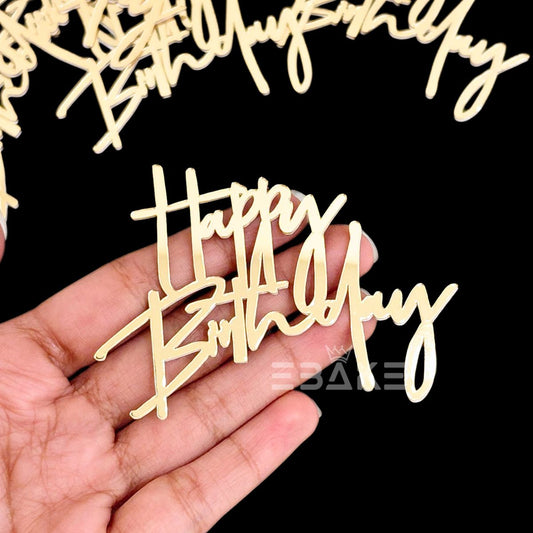 Birthday
Birthday
Happy
Birthday
EBAKE